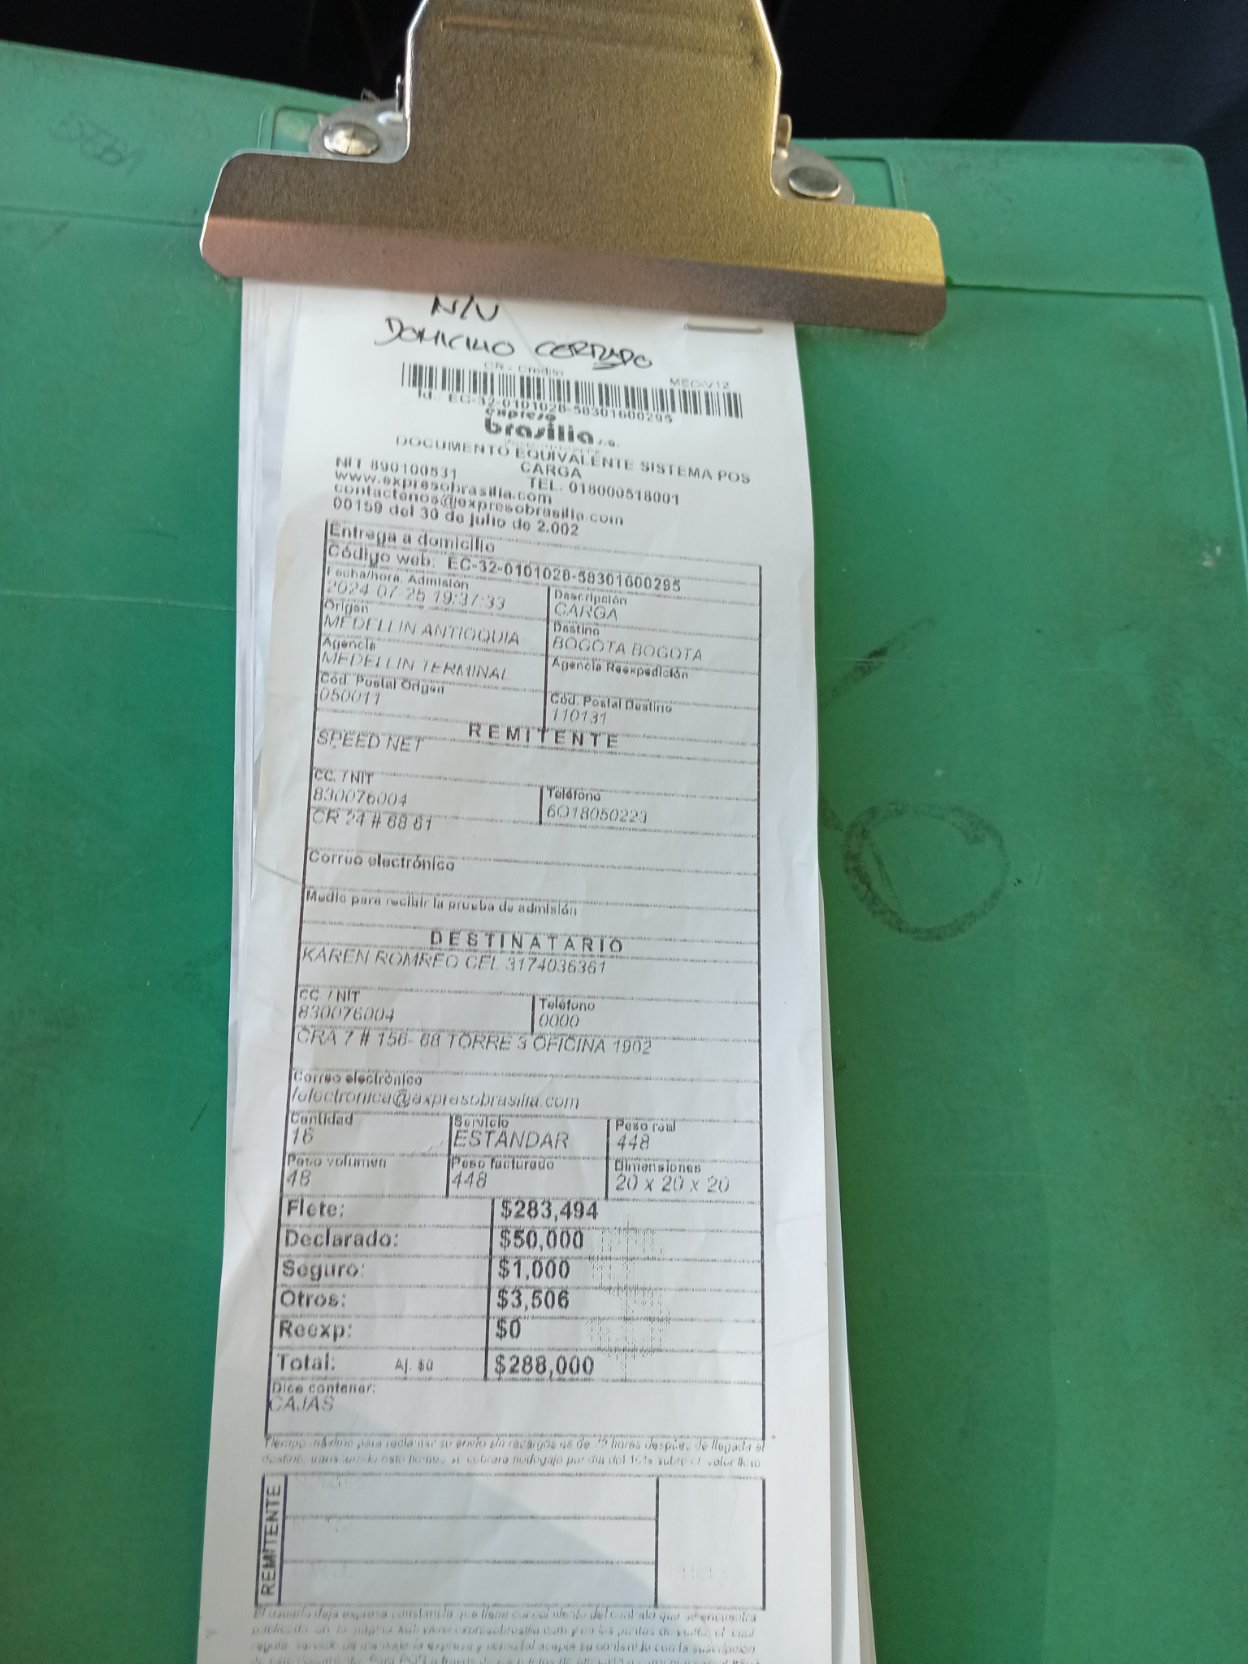 N/V
DOMICILIO CERRADO
CR - Credito MED-V12
Id.: EC-32-0101028-58301600295
expreso
brasilia s.a.
DOCUMENTO EQUIVALENTE SISTEMA POS
CARGA
NIT 890100531 TEL. 018000518001
www.expresobrasilia.com
contactenos@expresobrasilia.com
00159 del 30 de julio de 2.002
Entrega a domicilio
Código web: EC-32-0101028-58301600295
Fecha/hora. Admisión Descripción
2024-07-25 19:37:33 CARGA
Origen Destino
MEDELLIN ANTIOQUIA BOGOTA BOGOTA
Agencia Agencia Reexpedición
MEDELLIN TERMINAL
Cód. Postal Origen Cód. Postal Destino
050011 110131
REMITENTE
SPEED NET
CC. / NIT Teléfono
830076004 6018050223
CR 24 # 68 61
Correo electrónico
Medio para recibir la prueba de admisión
DESTINATARIO
KAREN ROMREO CEL 3174036361
CC. / NIT Teléfono
830076004 0000
CRA 7 # 156- 68 TORRE 3 OFICINA 1902
Correo electrónico
felectronica@expresobrasilia.com
Cantidad Servicio Peso real
16 ESTANDAR 448
Peso volumen Peso facturado Dimensiones
48 448 20 x 20 x 20
Flete: $283,494
Declarado: $50,000
Seguro: $1,000
Otros: $3,506
Reexp: $0
Total: Aj. $0 $288,000
Dice contener:
CAJAS
Tiempo máximo para reclamar su envío sin recargos es de 72 horas después de llegada al
destino, se cobrará bodegaje por día del 1% sobre el valor flete
REMITENTE
El usuario deja expresa constancia que tiene conocimiento del contrato que se encuentra
publicado en la página web www.expresobrasilia.com y en los puntos de venta, el cual
regula servicio de mensajería expresa y como tal acepta su contenido con la suscripción